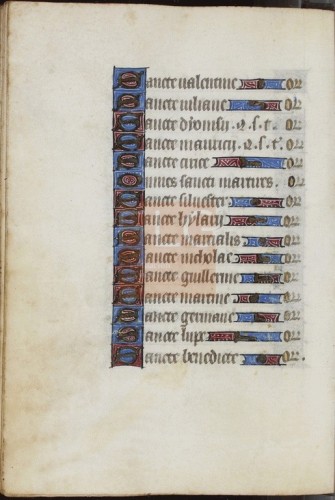 Sancte valentine Or
Sancte iuliane Or
Sancte dyonisii . q . s . t . Or
Sancte mauricii . q . s . t . Or
Sancte Or
Omnes sancti martires . Or
Sancte silvester Or
Sancte hylarii Or
Sancte martialis Or
Sancte nicholae Or
Sancte guillerme Or
Sancte martine Or
Sancte germane Or
Sancte lupe Or
Sancte benedicte Or .